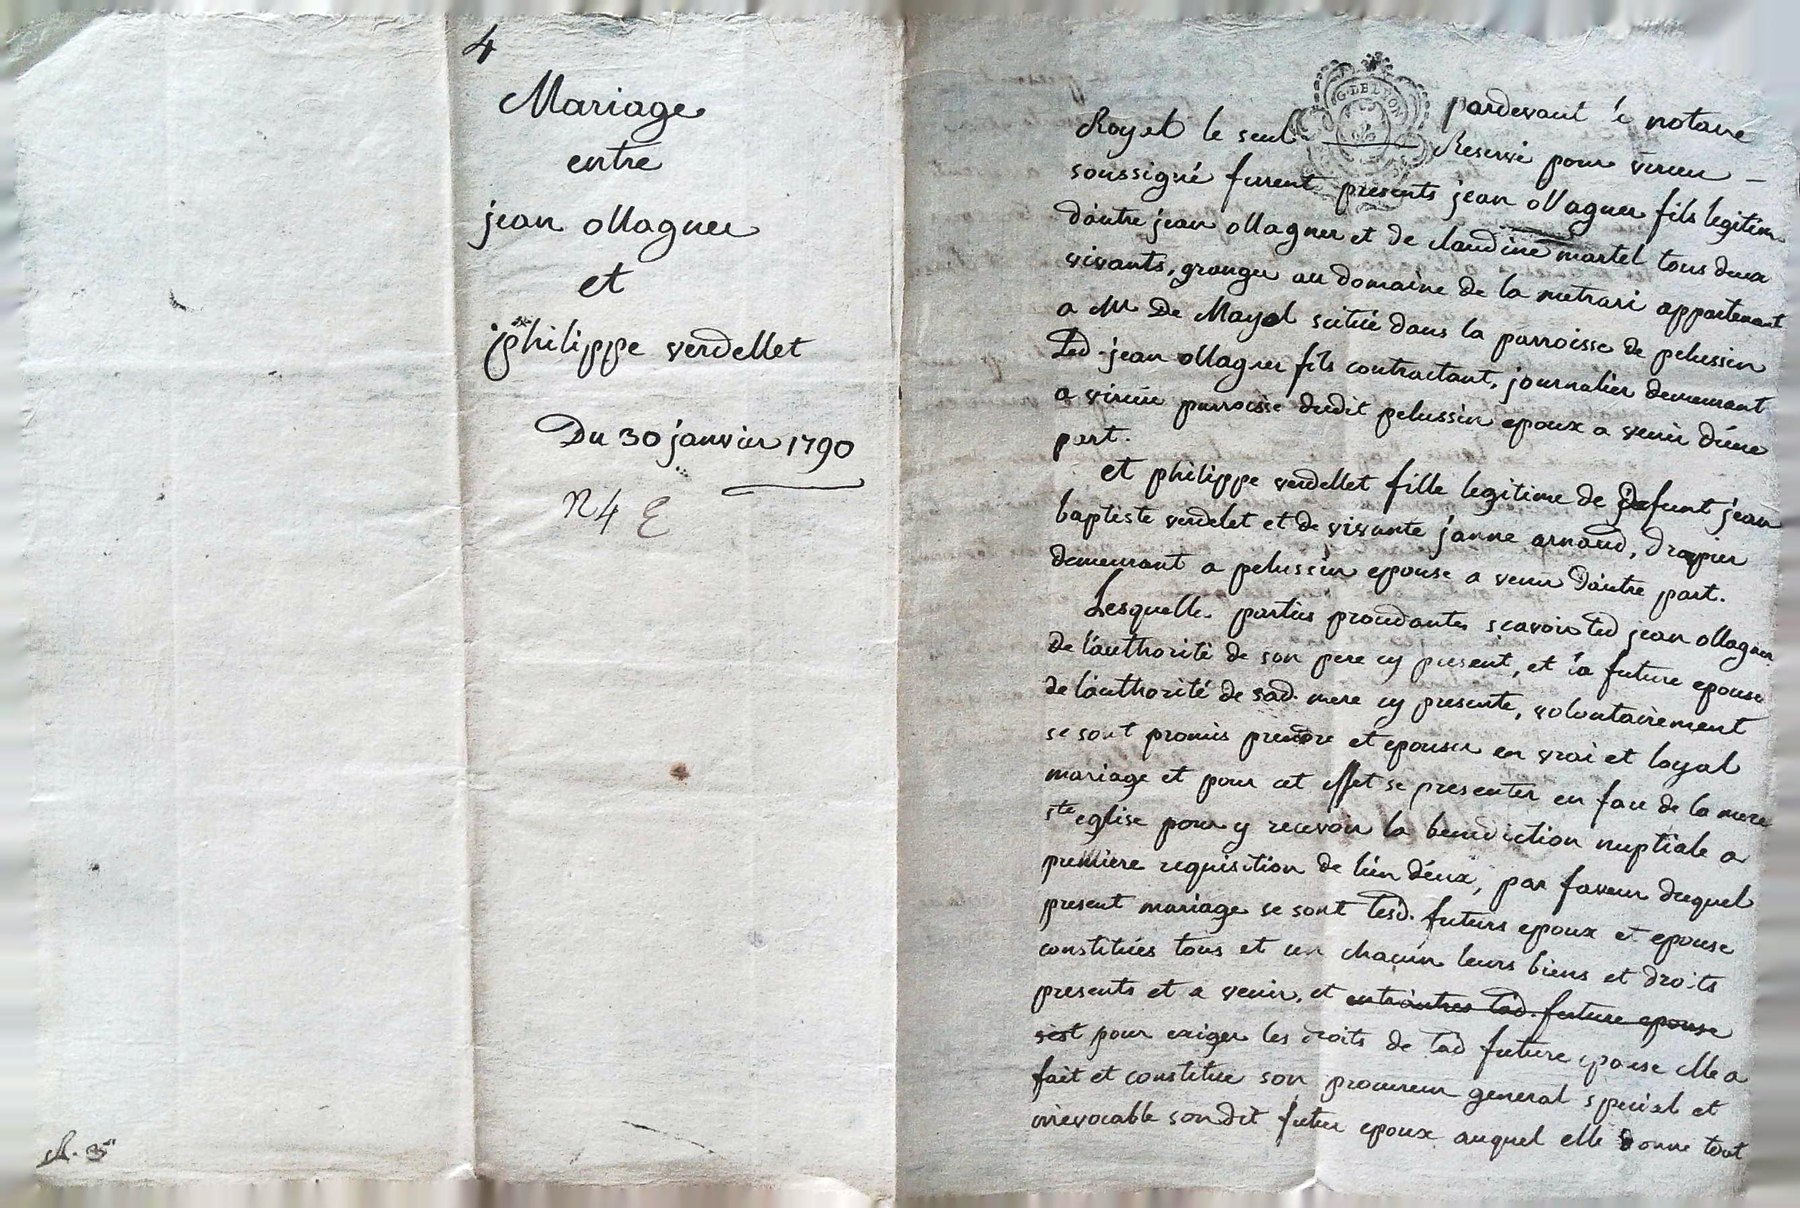 4
Mariage
entre
jean ollagner
et
philippe verdellet
Du 30 janvier 1790
n 4 E
R. 3"
G. DE LYON
pardevant le notaire
Royal le seul Reservé pour virieu
soussigné furent presents jean ollagner fils legitime
d'autre jean ollagner et de claudine martel tous deux
vivants, granger au domaine de la metrari appartenant
a Mr De Mayol scitué dans la parroisse de pelussin
Led. jean ollagner fils contractant, journalier demeurant
a virieu parroisse dudit pelussin epoux a venir d'une
part.
et philippe verdellet fille legitime de defunt jean
baptiste verdelet et de vivante janne arnaud, drapier
demeurant a pelussin epouse a venir d'autre part.
Lesquelle parties procedantes scavoir led jean ollagner
de l'authorité de son pere cy present, et la future epouse
de l'authorité de sad. mere cy presente, volontairement
se sont promis prendre et epouser en vrai et loyal
mariage et pour cet effet se presenter en face de la mere
ste eglise pour y recevoir la benediction nuptiale a
premiere requisition de l'un d'eux, par faveur duquel
present mariage se sont lesd. futurs epoux et epouse
constitués tous et un chacun leurs biens et droits
presents et a venir, et entr'autres lad. future epouse
s'est pour exiger les droits de lad future epouse elle a
fait et constitue son procureur general special et
irrevocable sondit futur epoux auquel elle donne tout